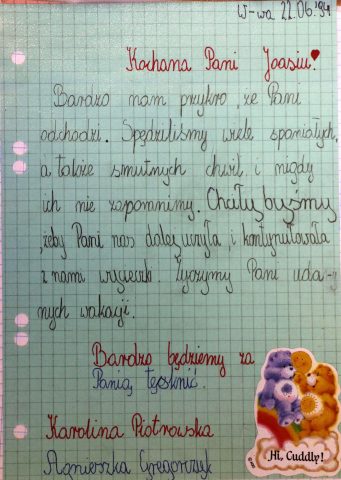 W-wa 22.06.'94
Kochana Pani Joasiu!
Bardzo nam przykro, że Pani
odchodzi. Spędziliśmy wiele spaniałych,
a także smutnych chwil i nigdy
ich nie zapomnimy. Chciałybyśmy
,żeby Pani nas dalej uczyła, i kontynuowała
z nami wycieczki. Życzymy Pani uda-
nych wakacji.
Bardzo będziemy za
Panią tęsknić.
Karolina Piotrowska
Agnieszka Gregorczyk
Hi, Cuddly!